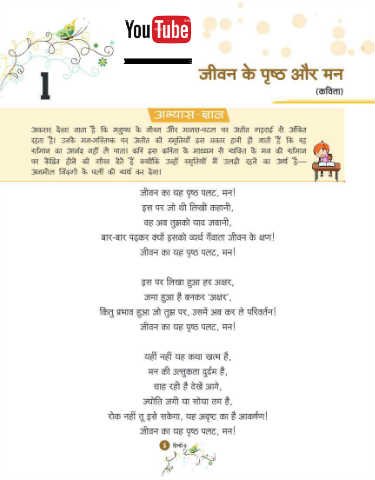 YouTube
1
जीवन के पृष्ठ और मन
(कविता)
अभ्यास ज्ञान
अकसर देखा जाता है कि मनुष्य के जीवन और मानस-पटल पर अतीत गहराई से अंकित
रहता है। उनके मन-मस्तिष्क पर अतीत की स्मृतियाँ इस प्रकार हावी हो जाती हैं कि वह
वर्तमान का आनंद नहीं ले पाता। कवि इस कविता के माध्यम से व्यक्ति के मन को वर्तमान
पर केंद्रित होने की सीख देते हैं क्योंकि उन्हीं स्मृतियों में उलझे रहने का अर्थ है—
अनमोल जिंदगी के पलों को व्यर्थ कर देना।
जीवन का यह पृष्ठ पलट, मन!
इस पर जो थी लिखी कहानी,
वह अब तुझको याद ज़बानी,
बार-बार पढ़कर क्यों इसको व्यर्थ गँवाता जीवन के क्षण!
जीवन का यह पृष्ठ पलट, मन!
इस पर लिखा हुआ हर अक्षर,
जमा हुआ है बनकर 'अक्षर',
किंतु प्रभाव हुआ जो तुझ पर, उसमें अब कर ले परिवर्तन!
जीवन का यह पृष्ठ पलट, मन!
यहीं नहीं यह कथा खत्म है,
मन की उत्सुकता दुर्दम है,
चाह रही है देखें आगे,
ज्योति जगी या सोया तम है,
रोक नहीं तू इसे सकेगा, यह अदृष्ट का है आकर्षण!
जीवन का यह पृष्ठ पलट, मन!
5